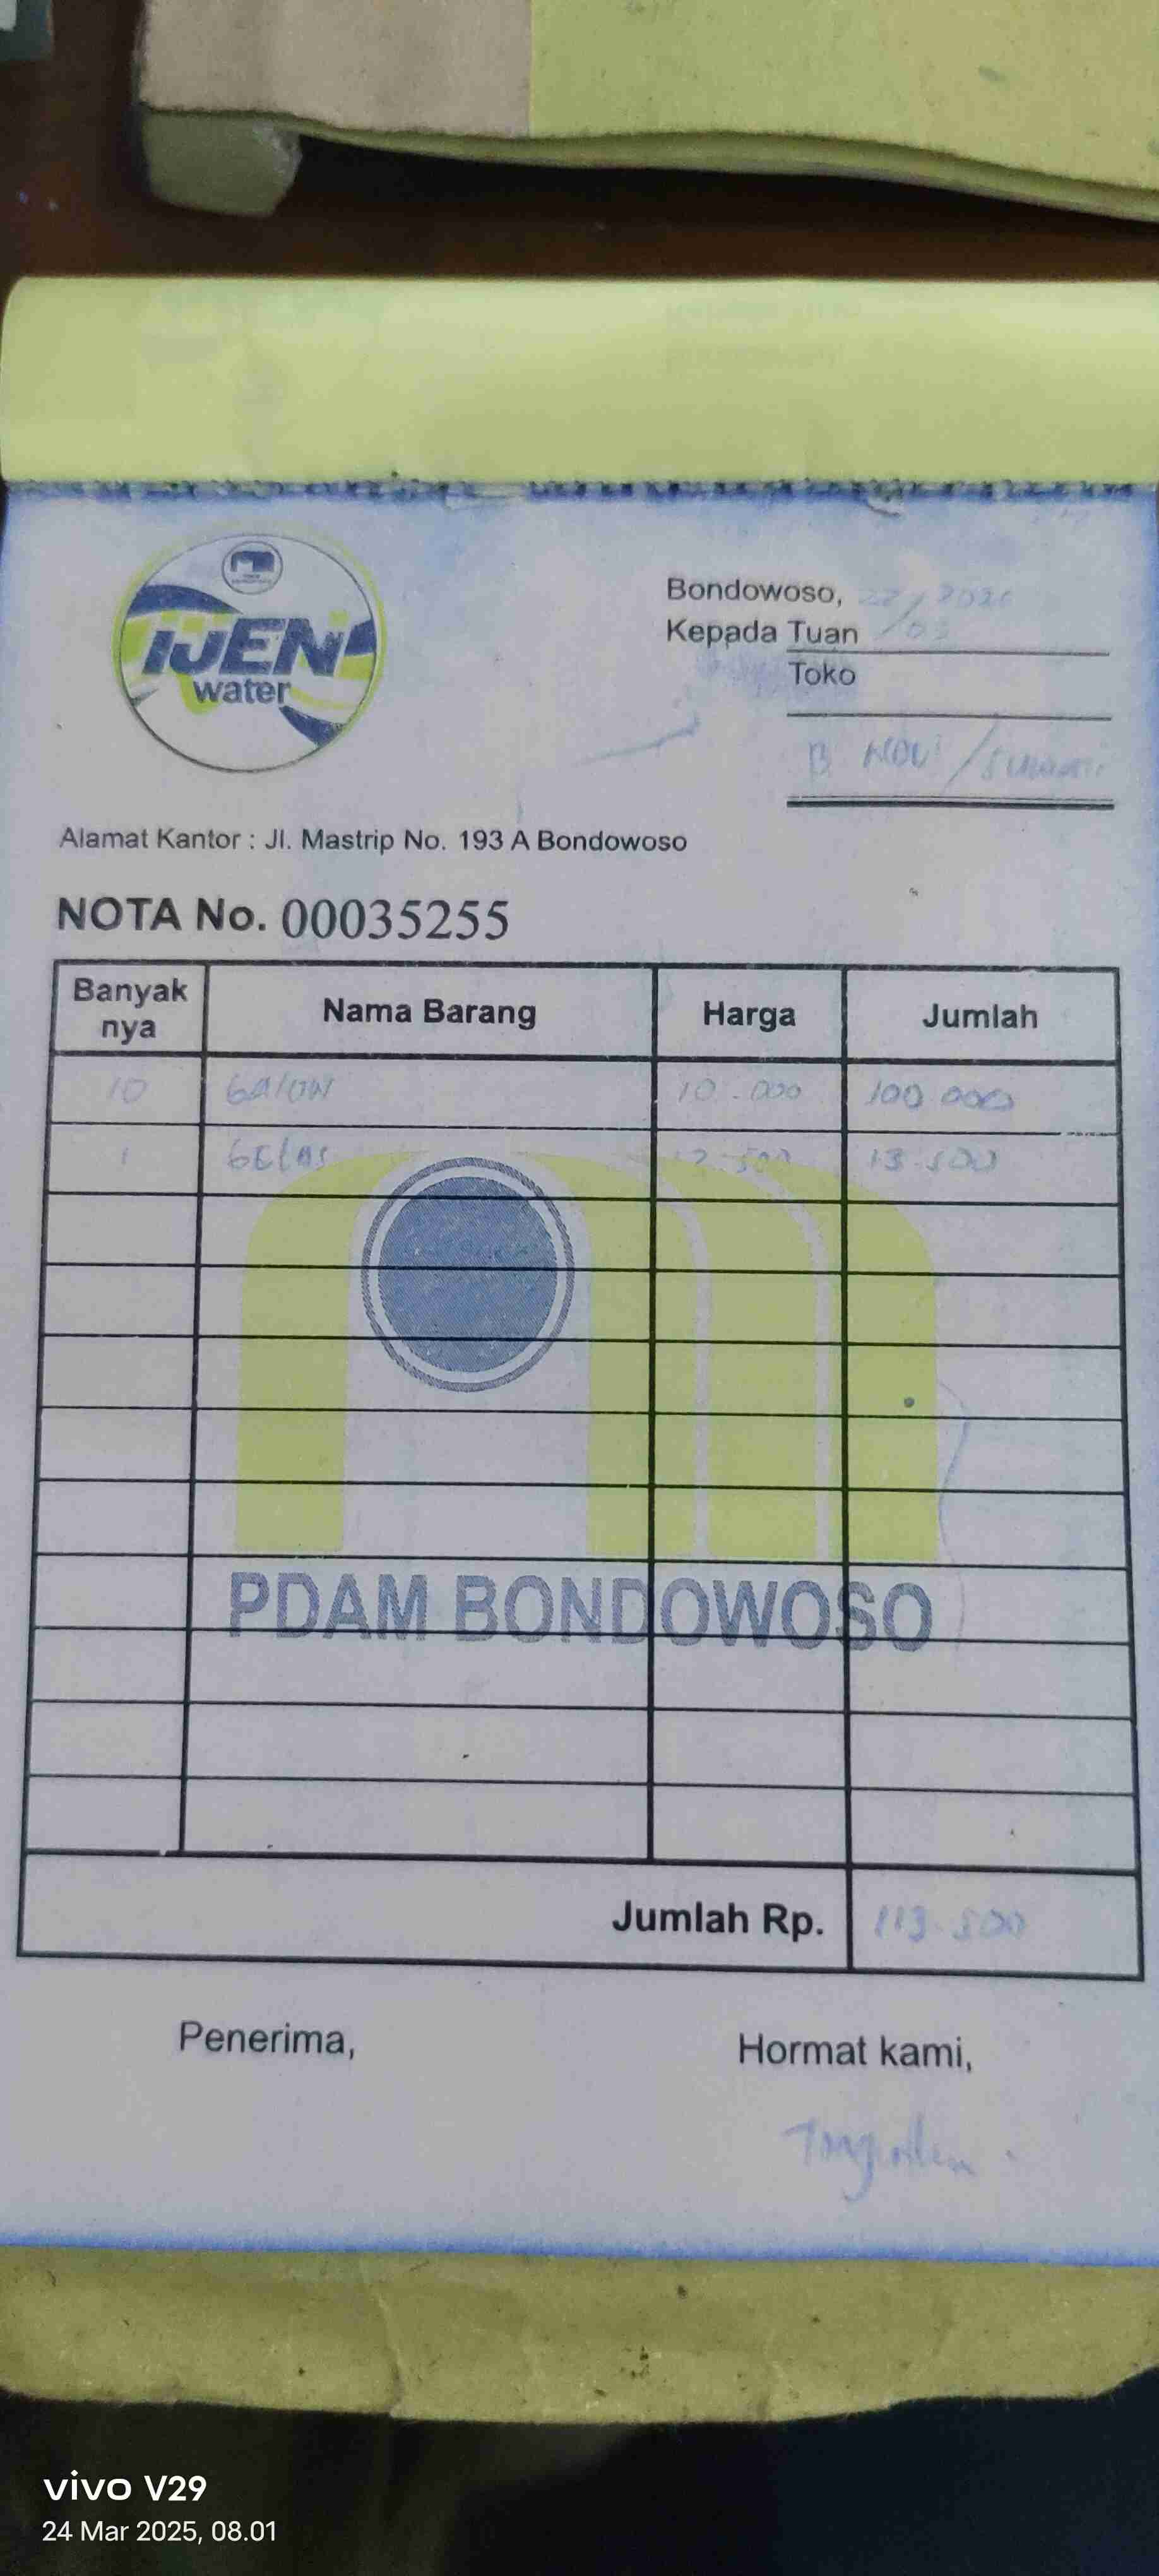 IJEN
water
Bondowoso, 22/03/2025
Kepada Tuan
Toko
B NOVI /
Alamat Kantor : Jl. Mastrip No. 193 A Bondowoso
NOTA No. 00035255
Banyak nya Nama Barang Harga Jumlah
10 GALON 10.000 100 000
1 GELAS 13.500
PDAM BONDOWOSO
Jumlah Rp. 113.500
Penerima, Hormat kami,
vivo V29
24 Mar 2025, 08.01